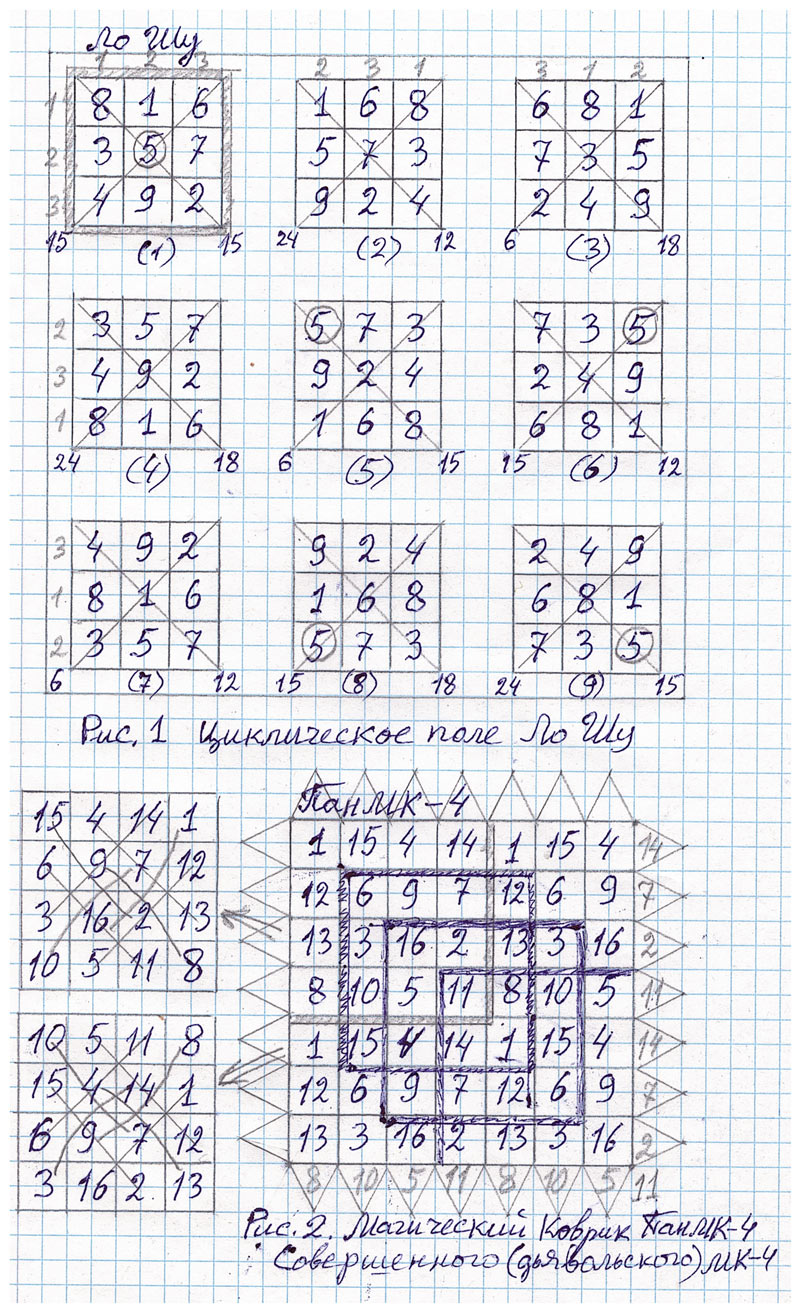 Ло Шу
1 2 3 2 3 1 3 1 2
1 8 1 6 1 6 8 6 8 1
2 3 5 7 5 7 3 7 3 5
3 4 9 2 9 2 4 2 4 9
15 (1) 15 24 (2) 12 6 (3) 18
2 3 5 7 5 7 3 7 3 5
3 4 9 2 9 2 4 2 4 9
1 8 1 6 1 6 8 6 8 1
24 (4) 18 6 (5) 15 15 (6) 12
3 4 9 2 9 2 4 2 4 9
1 8 1 6 1 6 8 6 8 1
2 3 5 7 5 7 3 7 3 5
6 (7) 12 15 (8) 18 24 (9) 15
Рис. 1 Циклическое поле Ло Шу
15 4 14 1
6 9 7 12
3 16 2 13
10 5 11 8
10 5 11 8
15 4 14 1
6 9 7 12
3 16 2 13
ПанМК-4
1 15 4 14 1 15 4 14
12 6 9 7 12 6 9 7
13 3 16 2 13 3 16 2
8 10 5 11 8 10 5 11
1 15 4 14 1 15 4 14
12 6 9 7 12 6 9 7
13 3 16 2 13 3 16 2
8 10 5 11 8 10 5 11
Рис. 2. Магический Коврик ПанМК-4
Совершенного (дьявольского) МК-4